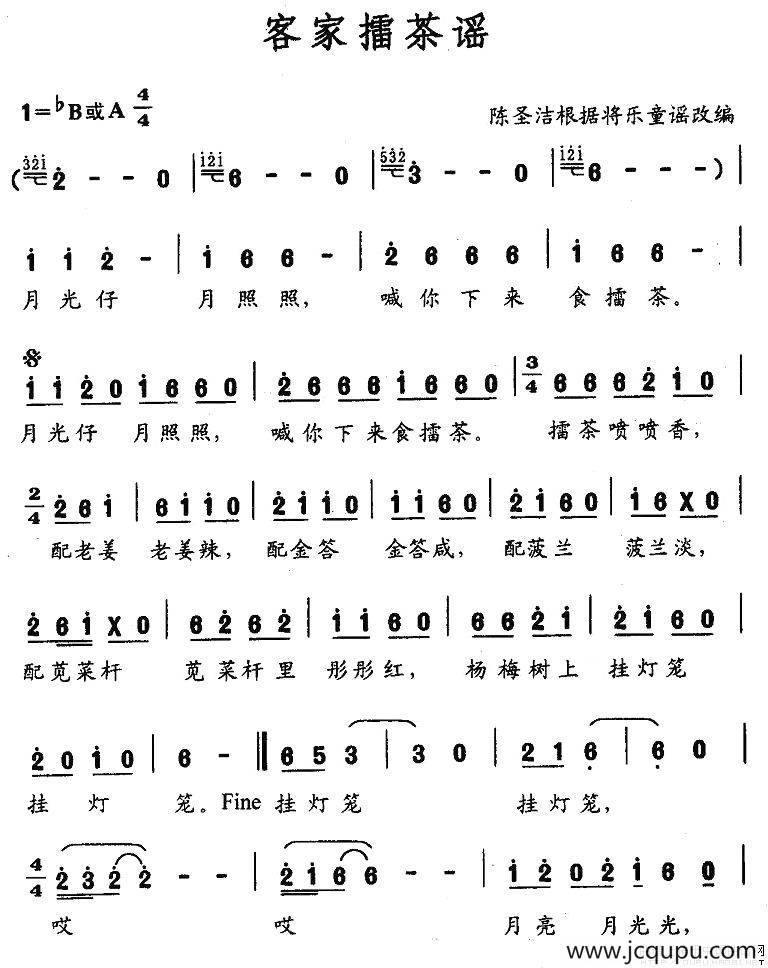 客家擂茶谣
1=♭B或A 4/4 陈圣洁根据将乐童谣改编
(3̇2̇1̇ 2̇ - - 0 | 1̇2̇1̇ 6 - - 0 | 5̇3̇2̇ 3̇ - - 0 | 1̇2̇1̇ 6 - - -) |
1̇ 1̇ 2̇ - | 1̇ 6 6 - | 2̇ 6 6 6 | 1̇ 6 6 - |
月光仔 月照照， 喊你下来 食擂茶。
1̇ 1̇ 2̇ 0 1̇ 6 6 0 | 2̇ 6 6 6 1̇ 6 6 0 | 3/4 6 6 6 2̇ 1̇ 0 |
月光仔 月照照， 喊你下来食擂茶。 擂茶喷喷香，
2/4 2̇ 6 1̇ | 6 1̇ 1̇ 0 | 2̇ 1̇ 1̇ 0 | 1̇ 1̇ 6 0 | 2̇ 1̇ 6 0 | 1̇ 6 X 0 |
配老姜 老姜辣， 配金答 金答咸， 配菠兰 菠兰淡，
2̇ 6 1̇ X 0 | 6 2̇ 6 2̇ | 1̇ 1̇ 6 0 | 6 6 2̇ 1̇ | 2̇ 1̇ 6 0 |
配苋菜杆 苋菜杆里 彤彤红， 杨梅树上 挂灯笼
2̇ 0 1̇ 0 | 6 - ‖ 6 5 3 | 3 0 | 2 1 6̣ | 6̣ 0 |
挂 灯 笼。Fine 挂灯笼 挂灯笼，
4/4 2̇ 3̇ 2̇ 2̇ - - | 2̇ 1̇ 6 6 - - | 1̇ 2̇ 0 2̇ 1̇ 6 0 |
哎 哎 月亮 月光光，
www.jcqupu.com